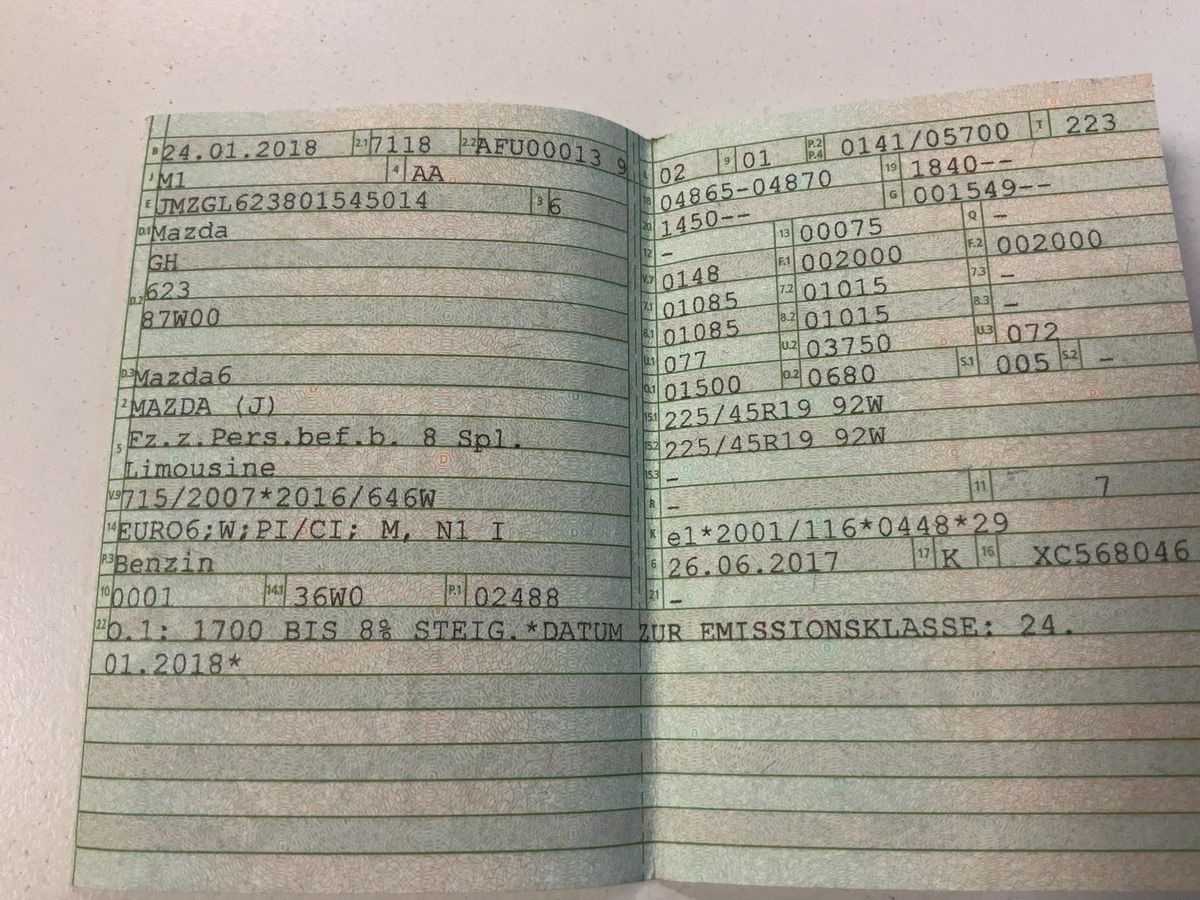 B 24.01.2018 2.1 7118 2.2 AFU00013 9
J M1 4 AA
E JMZGL623801545014 3 6
D.1 Mazda
GH
D.2 623
87W00
D.3 Mazda6
2 MAZDA (J)
5 Fz.z.Pers.bef.b. 8 Spl.
Limousine
V.9 715/2007*2016/646W
14 EURO6;W;PI/CI; M, N1 I
P.3 Benzin
10 0001 14.1 36W0 P.1 02488
02 9 01 P.2 P.4 0141/05700 T 223
18 04865-04870 19 1840--
20 1450-- G 001549--
12 - 13 00075 Q -
V.7 0148 F.1 002000 F.2 002000
7.1 01085 7.2 01015 7.3 -
8.1 01085 8.2 01015 8.3 -
U.1 077 U.2 03750 U.3 072
O.1 01500 O.2 0680 S.1 005 S.2 -
15.1 225/45R19 92W
15.2 225/45R19 92W
15.3 -
R - 11 7
K e1*2001/116*0448*29
6 26.06.2017 17 K 16 XC568046
21 -
22 O.1: 1700 BIS 8% STEIG.*DATUM ZUR EMISSIONSKLASSE: 24.
01.2018*